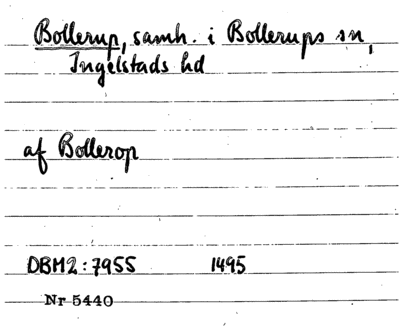 Bollerup, samh. i Bollerups sn,
Ingelstads hd
af Bollerop
DBM2:7955 1495
Nr 5440